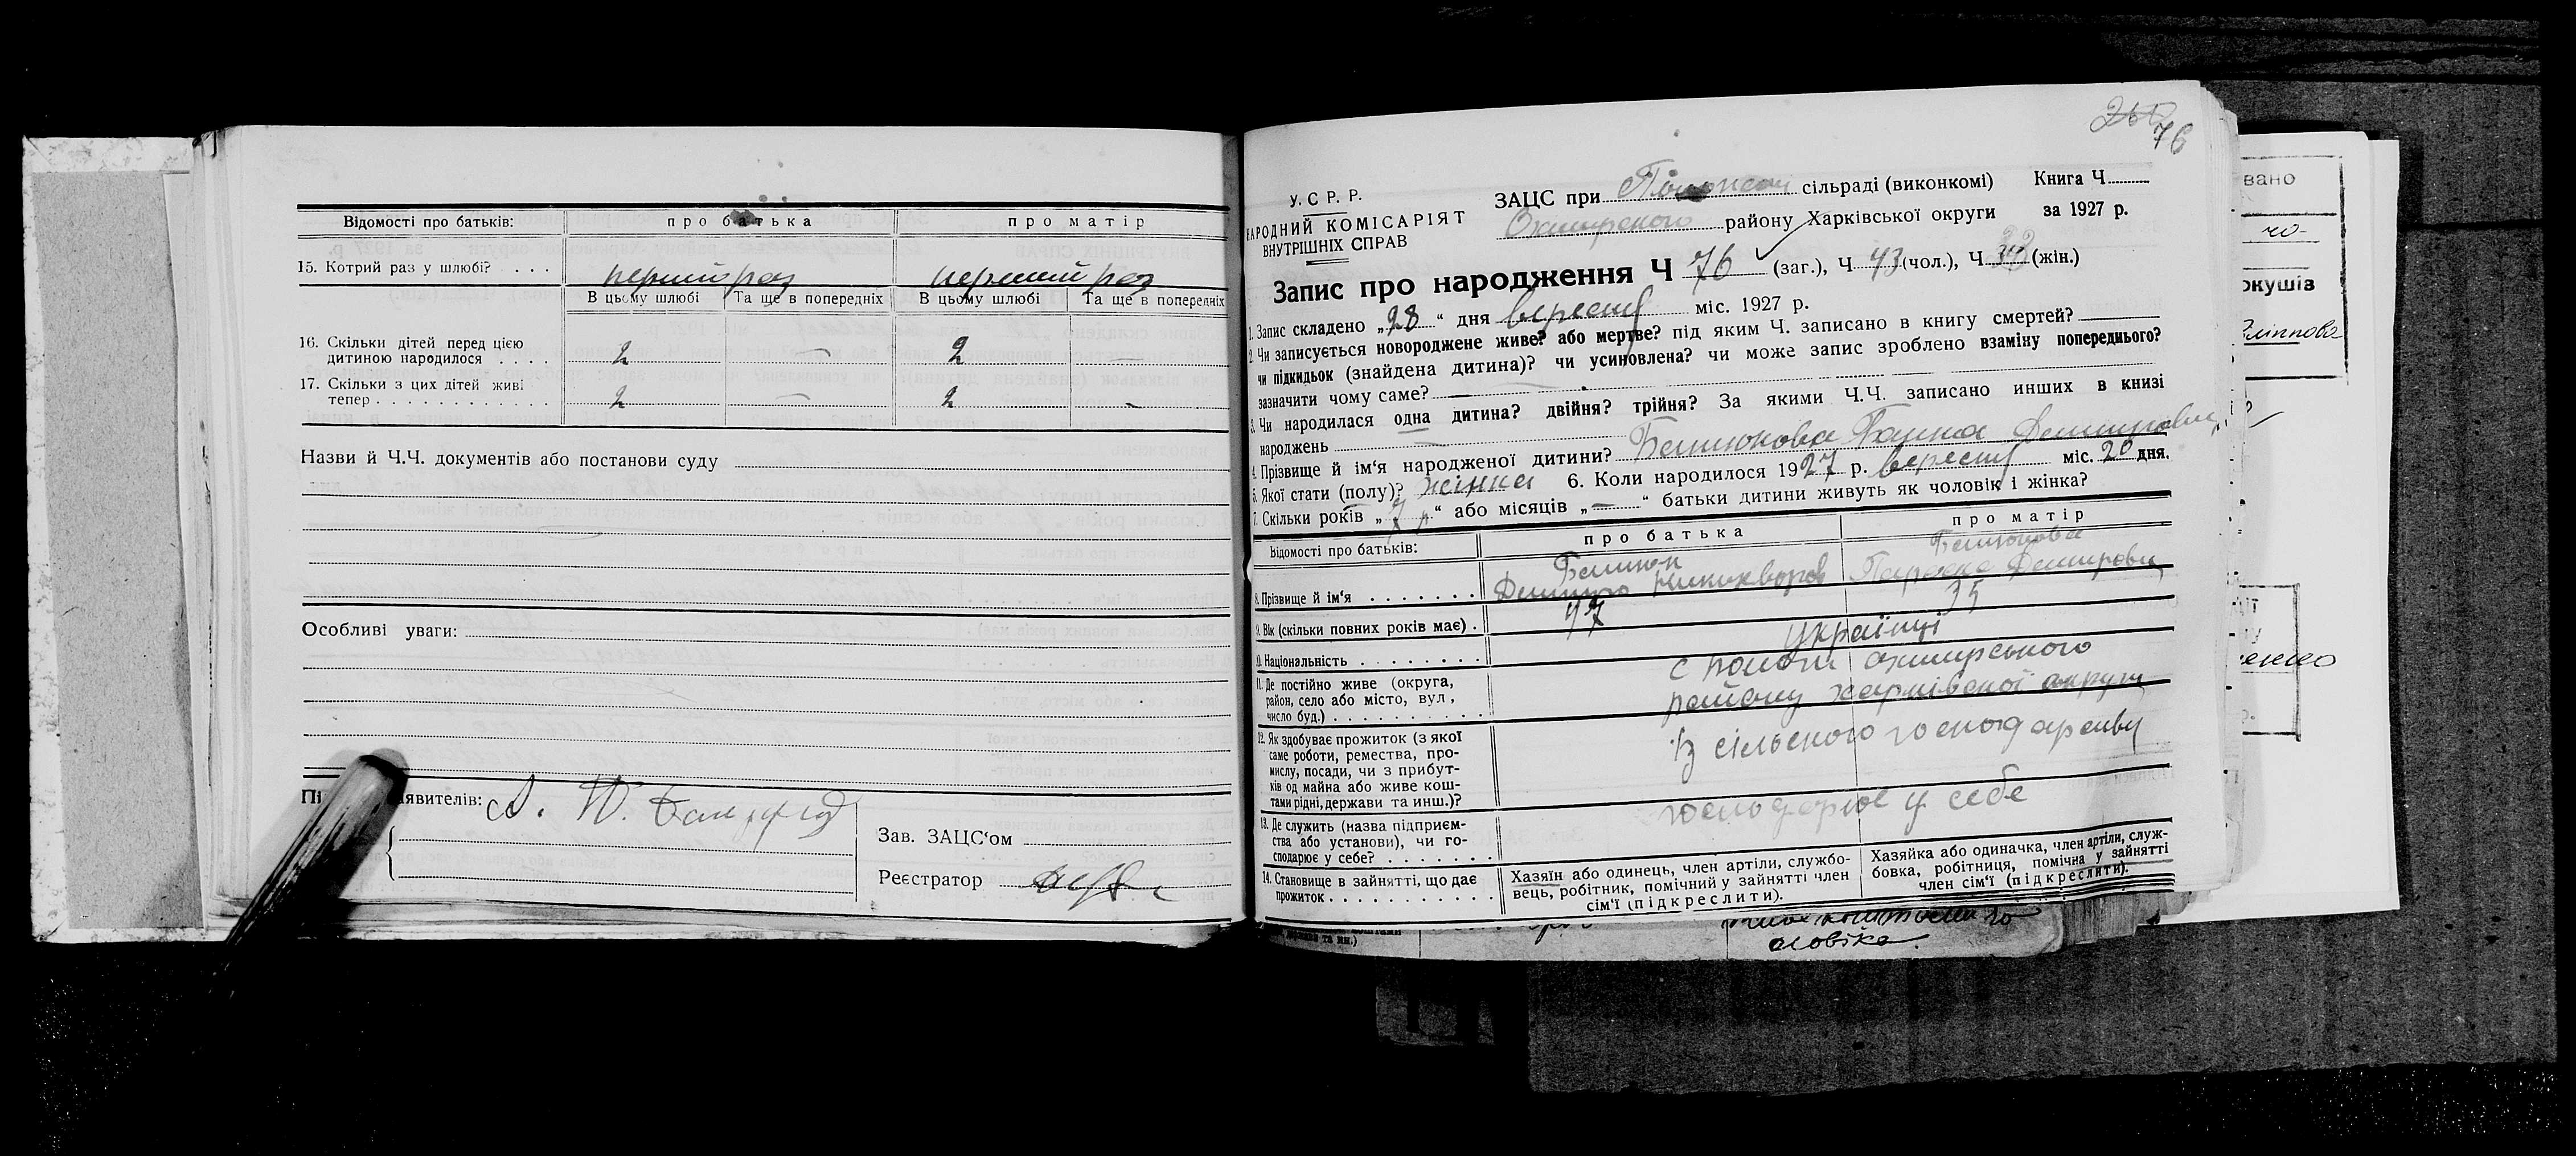 Відомості про батьків: про батька про матір
15. Котрий раз у шлюбі? . . . перший раз перший раз
В цьому шлюбі Та ще в попередніх В цьому шлюбі Та ще в попередніх
16. Скільки дітей перед цією
дитиною народилося . . . . 2 — 2 —
17. Скільки з цих дітей живі
тепер . . . . . . . . . . . . 2 — 2 -
Назви й Ч.Ч. документів або постанови суду
Особливі уваги:
явителів:
Зав. ЗАЦС'ом
Реєстратор
76
У. С. Р. Р.
НАРОДНИЙ КОМІСАРІЯТ
ВНУТРІШНІХ СПРАВ
ЗАЦС при сільраді (виконкомі) Книга Ч.
району Харківської округи за 1927 р.
Запис про народження Ч 76 (заг.), Ч 43 (чол.), Ч 33 (жін.)
1. Запис складено „28“ дня вересня міс. 1927 р.
2. Чи записується новороджене живе? або мертве? під яким Ч. записано в книгу смертей?
чи підкидьок (знайдена дитина)? чи усиновлена? чи може запис зроблено взаміну попереднього?
зазначити чому саме? —
3. Чи народилася одна дитина? двійня? трійня? За якими Ч.Ч. записано инших в книзі
народжень —
4. Прізвище й ім'я народженої дитини?
5. Якої статі (полу)? жінка 6. Коли народилося 1927 р. вересня міс. 20 дня.
7. Скільки років „7 р“ або місяців „—“ батьки дитини живуть як чоловік і жінка?
Відомості про батьків: про батька про матір
8. Прізвище й ім'я . . . . . . . Дмитро Параска
9. Вік (скільки повних років має) . 47 35
10. Національність . . . . . . . . українці
11. Де постійно живе (округа,
район, село або місто, вул.,
число буд.) . . . . . . . . . . .
району харківської округи
12. Як здобуває прожиток (з якої
саме роботи, ремества, про-
мислу, посади, чи з прибут-
ків од майна або живе кош-
тами рідні, держави та инш.)?
Із сільського господарства
13. Де служить (назва підприєм-
ства або установи), чи го-
сподарює у себе? . . . . . . .
господарює у себе
14. Становище в зайнятті, що дає
прожиток . . . . . . . . . . . .
Хазяїн або одинець, член артіли, службо-
вець, робітник, помічний у зайнятті член
сім'ї (підкреслити).
Хазяйка або одиначка, член артіли, служ-
бовка, робітниця, помічна у зайнятті
член сім'ї (підкреслити).